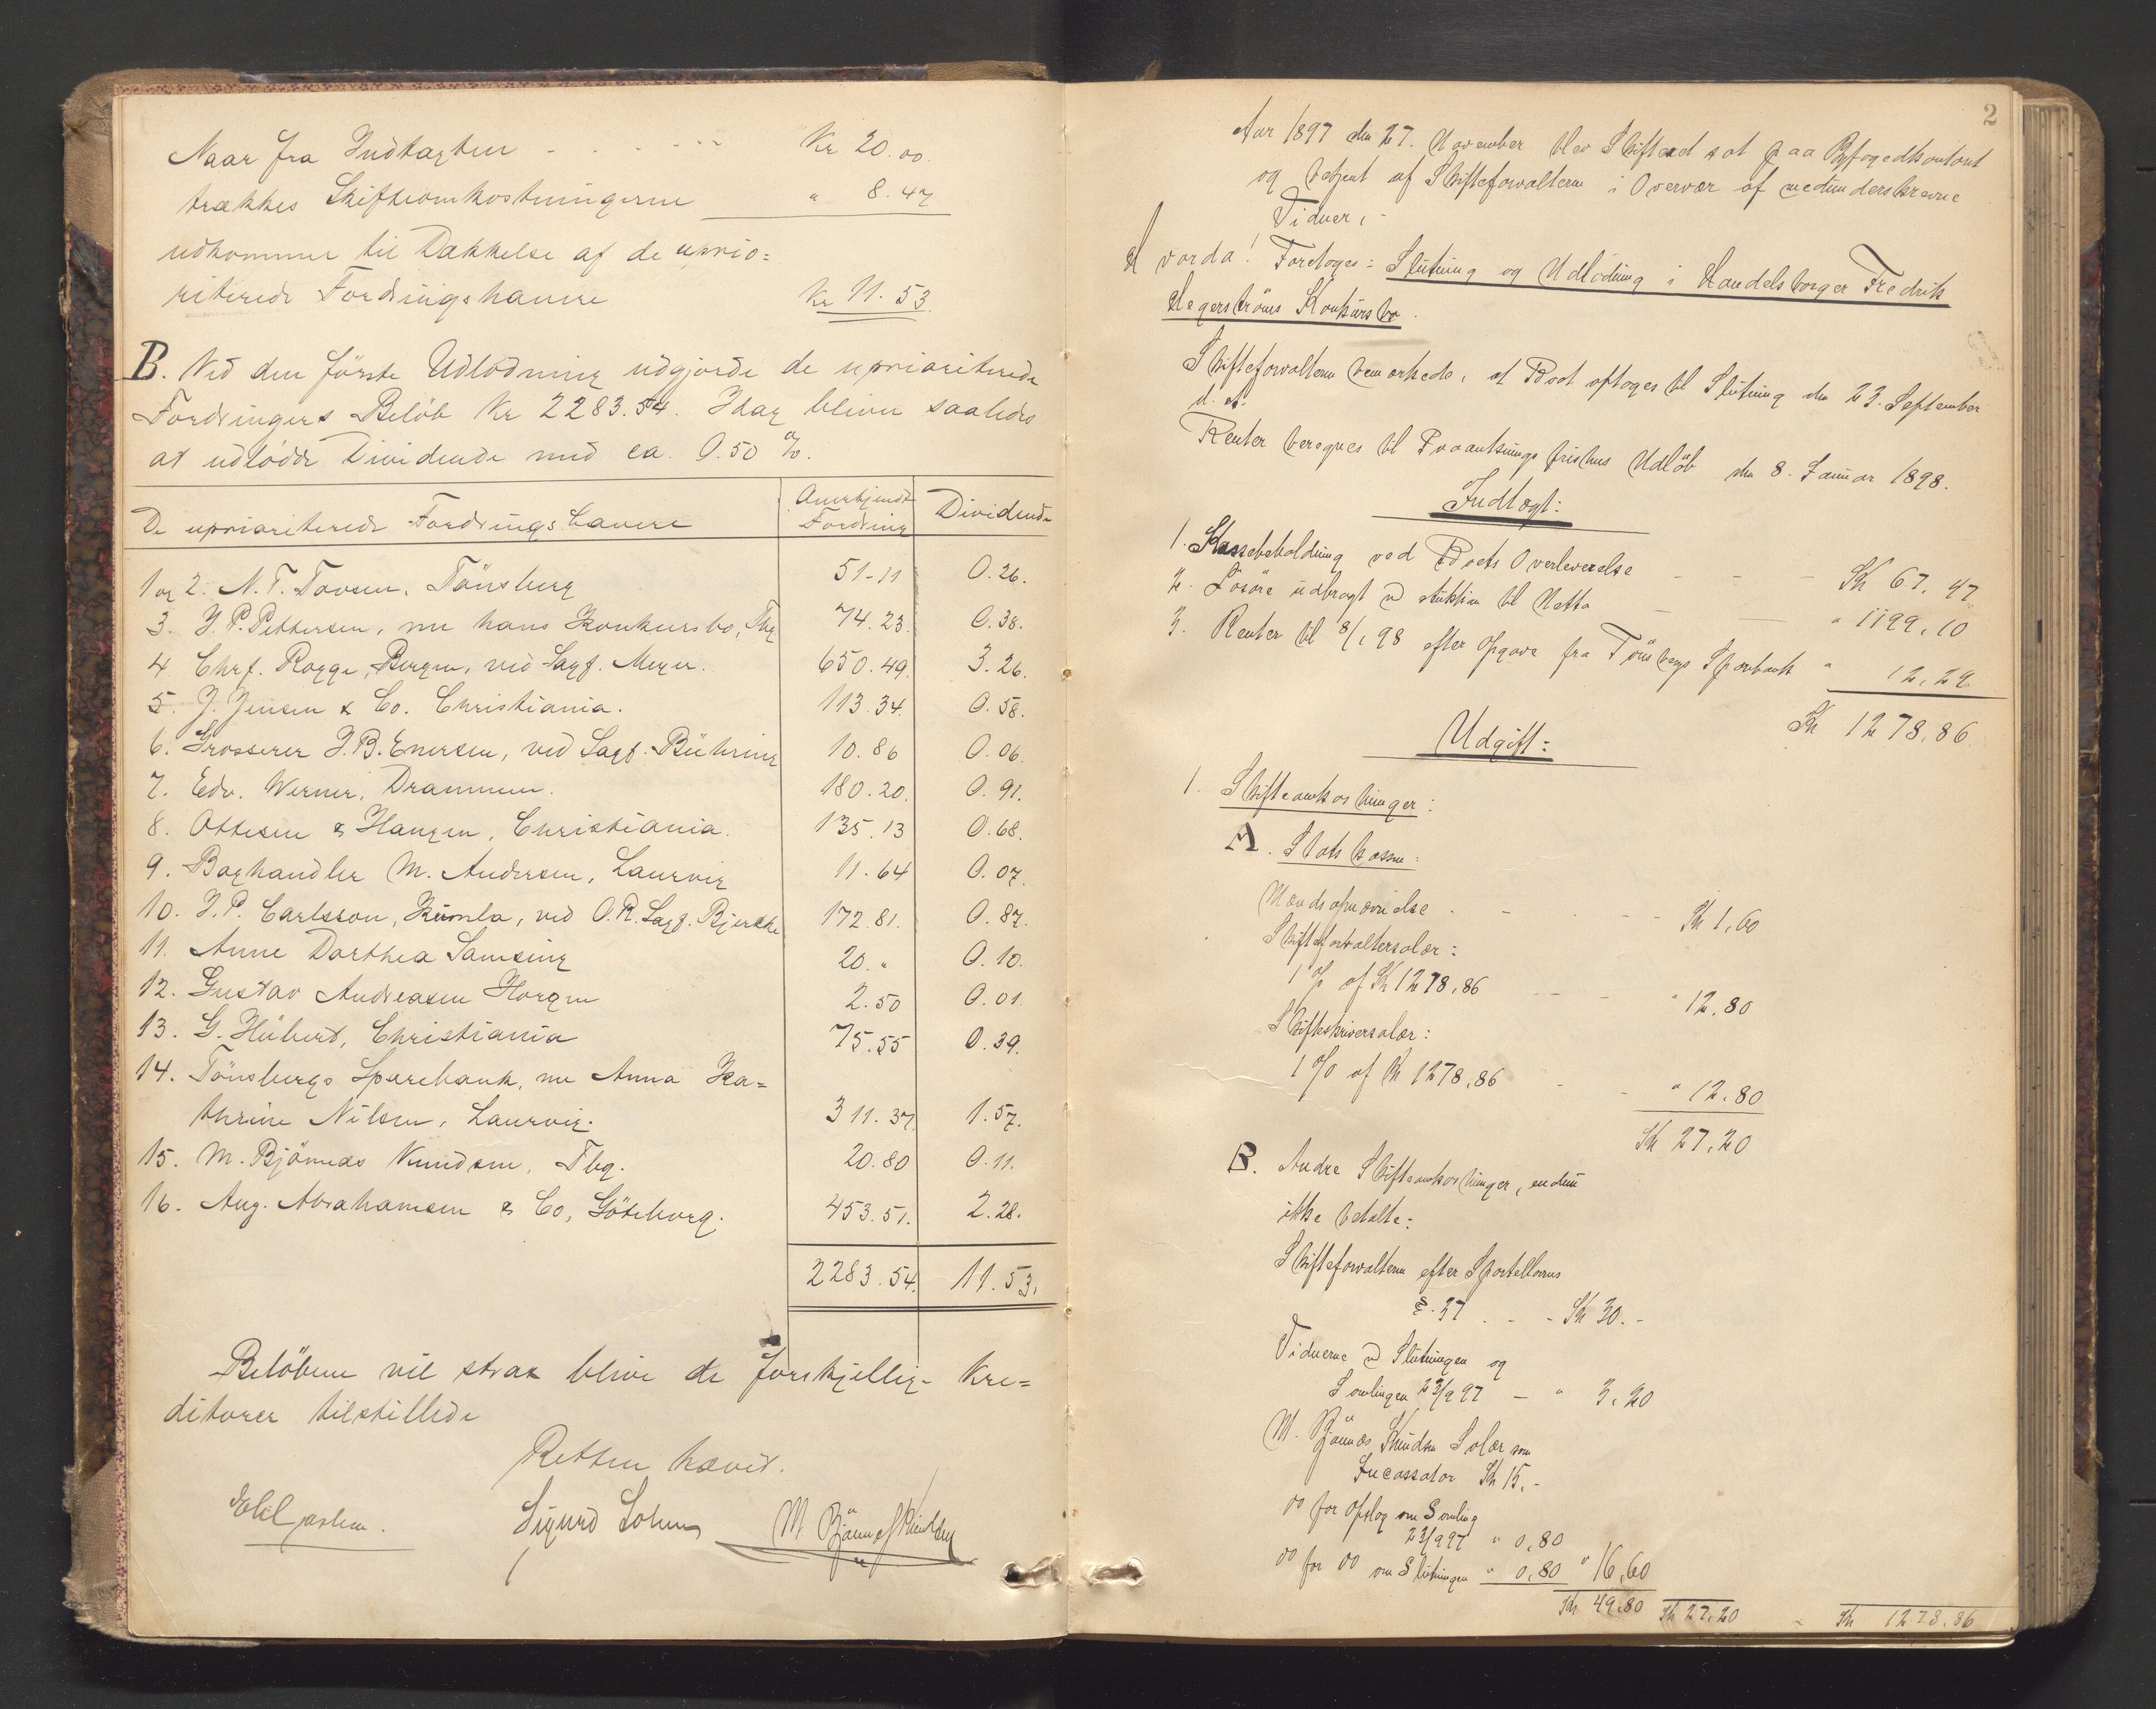 Naar fra Indtægten - . . . . . . Kr 20.00.
trækkes Skifteomkostningerne " 8.47
udkommer til Dækkelse af de uprio=
riterede Fordringshavere Kr 11.53.
B. Ved den første Udlodning udgjorde de uprioriterede
Fordringers Beløb Kr 2283.54. Idag bliver saaledes
at udlodde Dividende med ca. 0.50 %.
De uprioriterede Fordringshavere Anerkjendt Fordring Dividende
1 og 2. N. T. Tovsen, Tönsberg 51-11 0.26.
3. J. P. Pettersen, nu hans Konkursbo, Tbg 74.23. 0.38.
4. Chrf. Rogge, Bergen, ved Sagf. Meyer. 650.49. 3.26.
5. J. Jensen & Co. Christiania. 113.34. 0.58.
6. Grosserer J. B. Enersen, ved Sagf. Bühring 10.86 0.06.
7. Edv. Werner, Drammen. 180.20. 0.91.
8. Ottesen & Hangen, Christiania. 135.13 0.68.
9. Boghandler M. Andersen, Laurvig 11.64 0.07.
10. J. P. Carlsson, Kumla, ved O.R.Sagf. Bjercke 172.81. 0.87.
11. Anne Dorthea Samsing 20. " 0.10.
12. Gustav Andreasen Horgen 2.50 0.01.
13. G. Hübert, Christiania 75.55 0.39.
14. Tönsbergs Sparebank, nu Anna Ka=
thrine Nilsen, Laurvig. 311.37. 1.57.
15. M. Bjönnes Knudsen, Tbg. 20.80 0.11.
16. Aug. Abrahamsen & Co, Göteborg. 453.51. 2.28.
2283.54. 11.53.
Beløbene vil strax blive de forskjellige Kre=
ditorer tilstillede
Retten hævet.
Sigurd M. Bjönnes Knudsen
2
Aar 1897 den 27. November blev Skifteret sat paa Byfogedkontoret
og betjent af Skifteforvalteren i Overvær af medunderskrevne
Vidner, -
Hvorda! Foretoges: Slutning og Udlodning i Handelsborger Fredrik
Hegerströms Konkursbo.
Skifteforvalteren bemærkede, at Boet optoges til Slutning den 23. September
d. A.
Renter beregnes til Paaankningsfristens Udløb den 8. Januar 1898.
Indtægt:
1. Kassebeholdning ved Boets Overleverelse - - - Kr 67,47
2. Løsøre udbragt v Auktion til Netto — — " 1199,10
3. Renter til 8/1 98 efter Opgave fra Tönsbergs Sparebank " 12,29
Kr 1278,86
Udgift:
1. Skifteomkostninger:
A. Statskassen:
Mændsopnævnelse . - . . - - Kr 1,60
Skifteforvaltersalær:
1 % af Kr 1278,86 - - - " 12,80
Skifteskriversalær:
1 % af Kr 1278,86 - - " 12.80
Kr 27,20
B. Andre Skifteomkostninger, endnu
ikke betalte:
Skifteforvalteren efter Sportellovens
§. 37 . - - Kr 30.-
Vidnerne v Slutningen og
Samlingen 23/9 97 - " 3,20
M. Bjönnes Knudsen Salær som
Incassator Kr 15,-
do for Opslag om Samling
23/9 97 " 0,80
do for do om Slutningen " 0,80 " 16,60
Kr 49.80 Kr 27,20 - Kr 1278.86